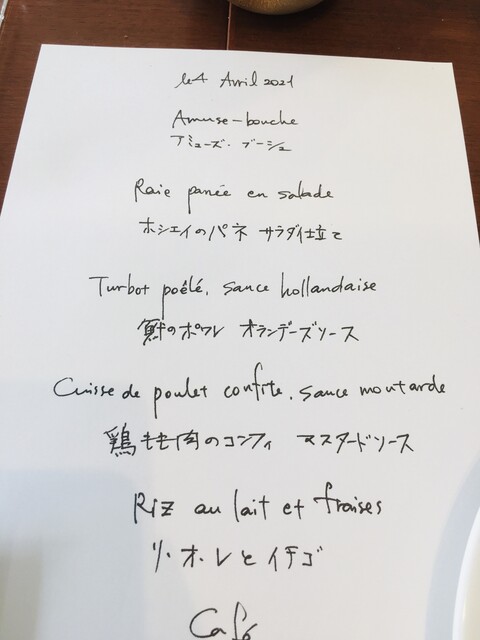 le 4 Avril 2021
Amuse-bouche
アミューズ・ブーシュ
Raie panée en salade
ホシエイのパネ サラダ仕立て
Turbot poêlé, sauce hollandaise
鮃のポワレ オランデーズソース
Cuisse de poulet confite, sauce moutarde
鶏もも肉のコンフィ マスタードソース
Riz au lait et fraises
リ・オ・レとイチゴ
Café